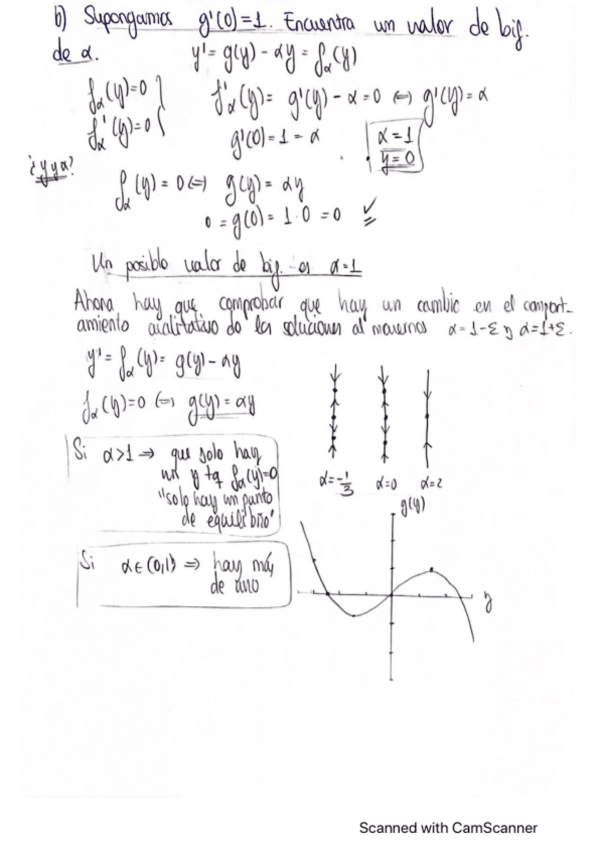 b) Supongamos g'(0)=1. Encuentra un valor de bif.
de α. y' = g(y) - αy = fα(y)
fα(y)=0
fα'(y)=0
f'α(y) = g'(y) - α = 0 ⇔ g'(y) = α
g'(0) = 1 = α
α = 1
y = 0
¿y y α?
fα(y) = 0 ⇔ g(y) = αy
0 = g(0) = 1·0 = 0 ✓
Un posible valor de bif. es α=1
Ahora hay que comprobar que hay un cambio en el comport-
amiento cualitativo de las soluciones al movernos α=1-ε y α=1+ε.
y' = fα(y) = g(y) - αy
fα(y)=0 ⇔ g(y) = αy
Si α>1 ⇒ que solo hay
un y tq fα(y)=0
"solo hay un punto
de equilibrio"
α=-1/3 α=0 α=2
g(y)
y
Si α∈(0,1) ⇒ hay más
de uno
Scanned with CamScanner